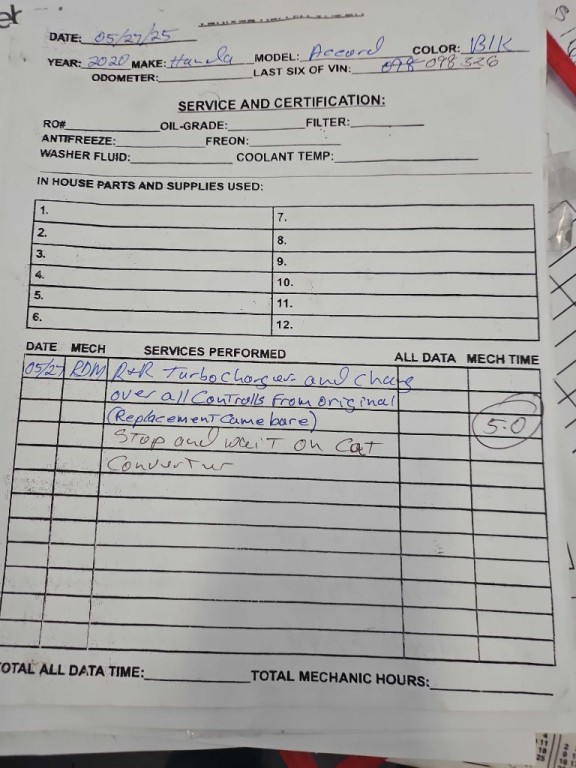 er
DATE: 05/27/25
YEAR: 2020 MAKE: Honda MODEL: Accord COLOR: Blk
ODOMETER: LAST SIX OF VIN: 098336
SERVICE AND CERTIFICATION:
RO# OIL-GRADE: FILTER:
ANTIFREEZE: FREON:
WASHER FLUID: COOLANT TEMP:
IN HOUSE PARTS AND SUPPLIES USED:
1. 7.
2. 8.
3. 9.
4. 10.
5. 11.
6. 12.
DATE MECH SERVICES PERFORMED ALL DATA MECH TIME
05/27 RDM R+R Turbocharger and Change
over all Controlls From original
(Replacement Came bare) 5.0
Stop and wait on Cat
Convertur
OTAL ALL DATA TIME: TOTAL MECHANIC HOURS: